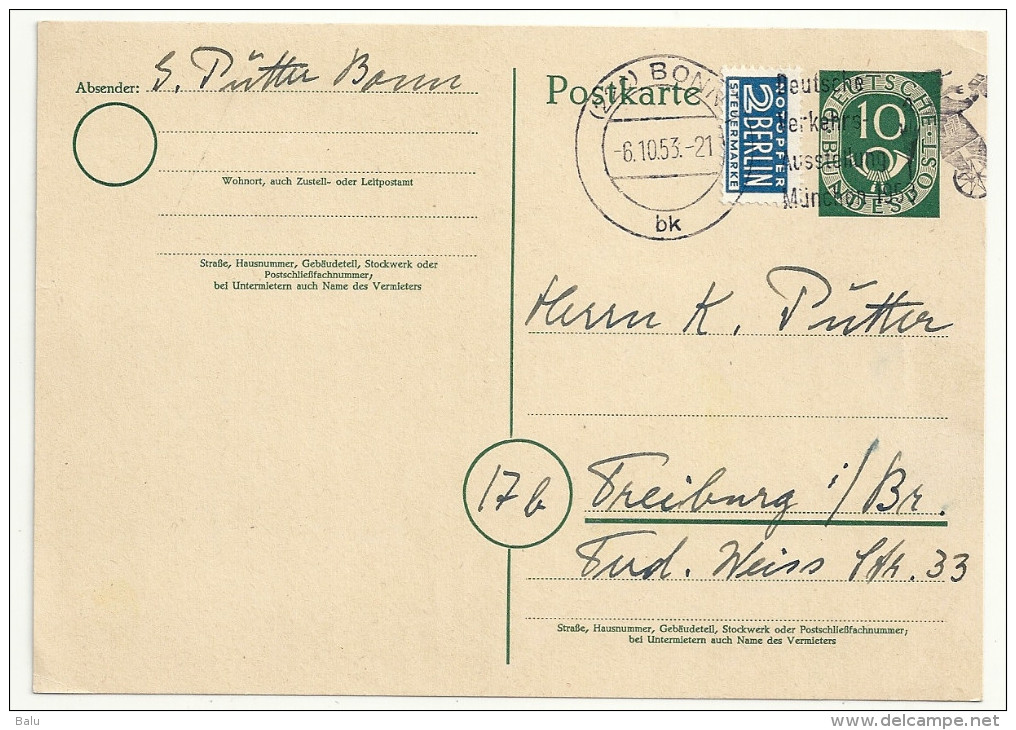 Absender: S. Pütter Bonn
Wohnort, auch Zustell- oder Leitpostamt
Straße, Hausnummer, Gebäudeteil, Stockwerk oder
Postschließfachnummer;
bei Untermietern auch Name des Vermieters
Postkarte
BONN
-6.10.53.-21
bk
NOTOPFER
2 BERLIN
STEUERMARKE
Deutsche
Verkehrs-
Ausstellung
München 195
DEUTSCHE BUNDESPOST
10
Herrn K. Pütter
17b
Freiburg i/Br.
Ferd. Weiss Str. 33
Straße, Hausnummer, Gebäudeteil, Stockwerk oder Postschließfachnummer;
bei Untermietern auch Name des Vermieters
Balu
www.delcampe.net